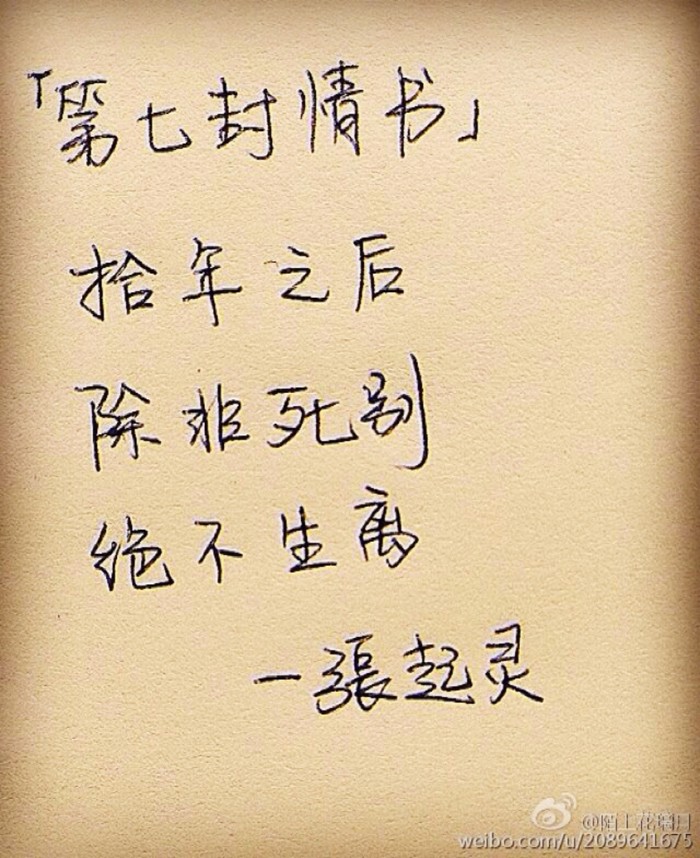 「第七封情书」
拾年之后
除非死别
绝不生离
一張起灵
weibo.com/u/2089641675